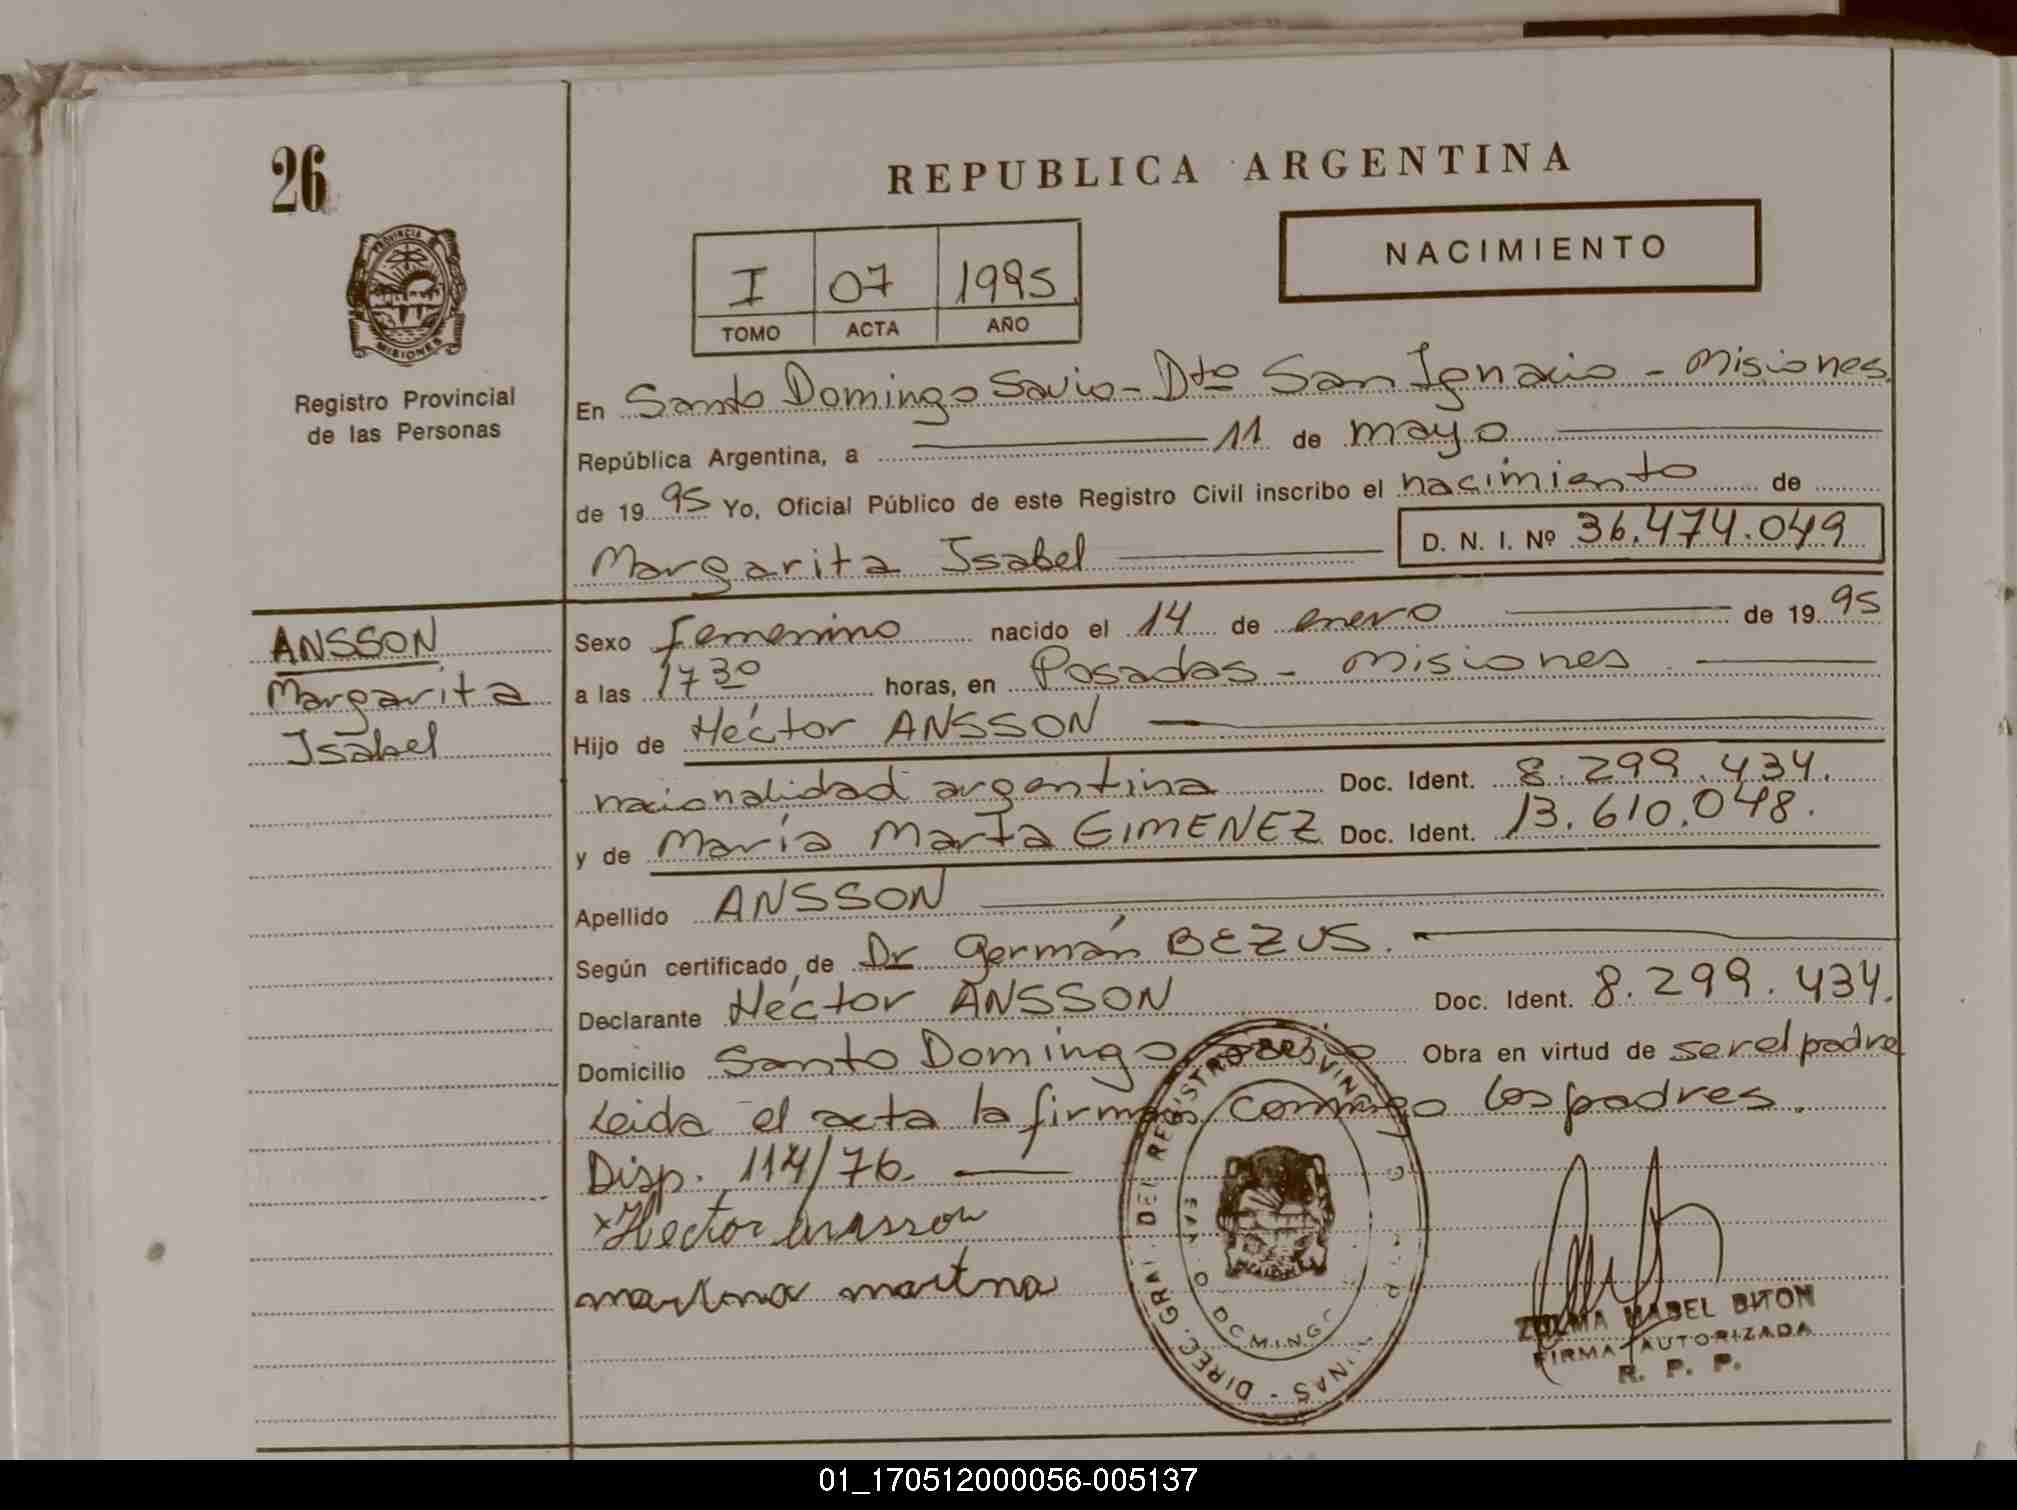 26
REPUBLICA ARGENTINA
PROVINCIA
MISIONES
Registro Provincial
de las Personas
I 07 1995
TOMO ACTA AÑO
NACIMIENTO
En Santo Domingo Savio - Dto San Ignacio - Misiones
República Argentina, a 11 de mayo
de 1995 Yo, Oficial Público de este Registro Civil inscribo el nacimiento de
Margarita Isabel D. N. I. Nº 36.474.049
ANSSON
Margarita
Isabel
Sexo Femenino nacido el 14 de enero de 1995
a las 17 30 horas, en Posadas - Misiones
Hijo de Héctor ANSSON
nacionalidad argentina Doc. Ident. 8.299.434.
y de María Marta GIMENEZ Doc. Ident. 13.610.048.
Apellido ANSSON
Según certificado de Dr Germán BEZUS.
Declarante Héctor ANSSON Doc. Ident. 8.299.434.
Domicilio Santo Domingo Savio Obra en virtud de ser el padre
Leida el acta la firman conmigo los padres.
Disp. 114/76.
x Hector Ansson
DIREC. GRAL. DEL REGISTRO
DOMINGO
ZULMA MABEL BITON
FIRMA AUTORIZADA
R. P. P.
01_170512000056-005137